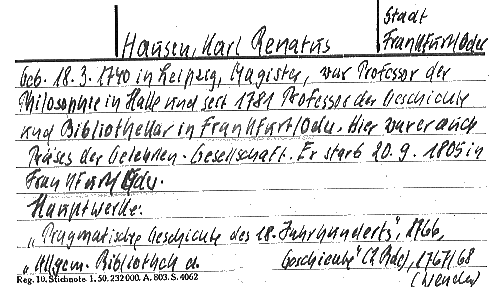 Stadt
Hausen, Karl Renatus Frankfurt/Oder
Geb. 18.3.1740 in Leipzig, Magister, war Professor der
Philosophie in Halle und seit 1781 Professor der Geschichte
und Bibliothekar in Frankfurt/Oder. Hier war er auch
Präses der Gelehrten-Gesellschaft. Er starb 20.9.1805 in
Frankfurt/Oder.
Hauptwerke:
"Pragmatische Geschichte des 18. Jahrhunderts", 1766,
"Allgem. Bibliothek d. Geschichte" (2 Bde), 1767/68
Reg. 10. Stichnote 1. 50. 232 000. A. 803. S. 4062
(wenden)